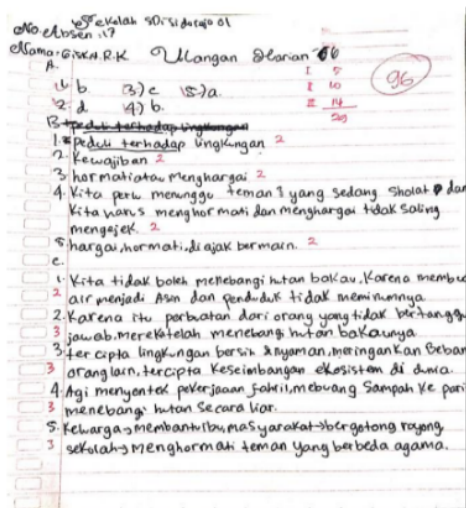 Sekolah SD: Sidorejo 01
No. Absen: 17
Nama: GISKA.R.K Ulangan Harian
96
A.
1) b 3) c 5) a
I 5
2. d 4) b.
II 10
III 14
29
B. peduli terhadap lingkungan
1. peduli terhadap lingkungan 2
2. Kewajiban 2
3. hormatiatau menghargai 2
4. Kita perlu menunggu teman2 yang sedang sholat dan
Kita harus menghormati dan menghargai tidak saling
mengejek. 2
5. hargai, hormati, di ajak bermain. 2
C.
1. Kita tidak boleh menebangi hutan bakau, Karena membu
2 air menjadi Asin dan penduduk tidak meminumnya
2. Karena itu perbuatan dari orang yang tidak bertangg
3 jawab. mereka telah menebang hutan bakaunya
3. ter cipta lingkungan bersih & nyaman, meringankan Beban
3 orang lain, tercipta Keseimbangan ekosistem di dunia.
4. Agi menyontek pekerjaan fahril, mebuang Sampah Ke pari
3 menebangi hutan Secara liar.
5. Kelwarga → membantu ibu, masyarakat → bergotong royong
3 sekolah → menghormati teman yang berbeda agama.